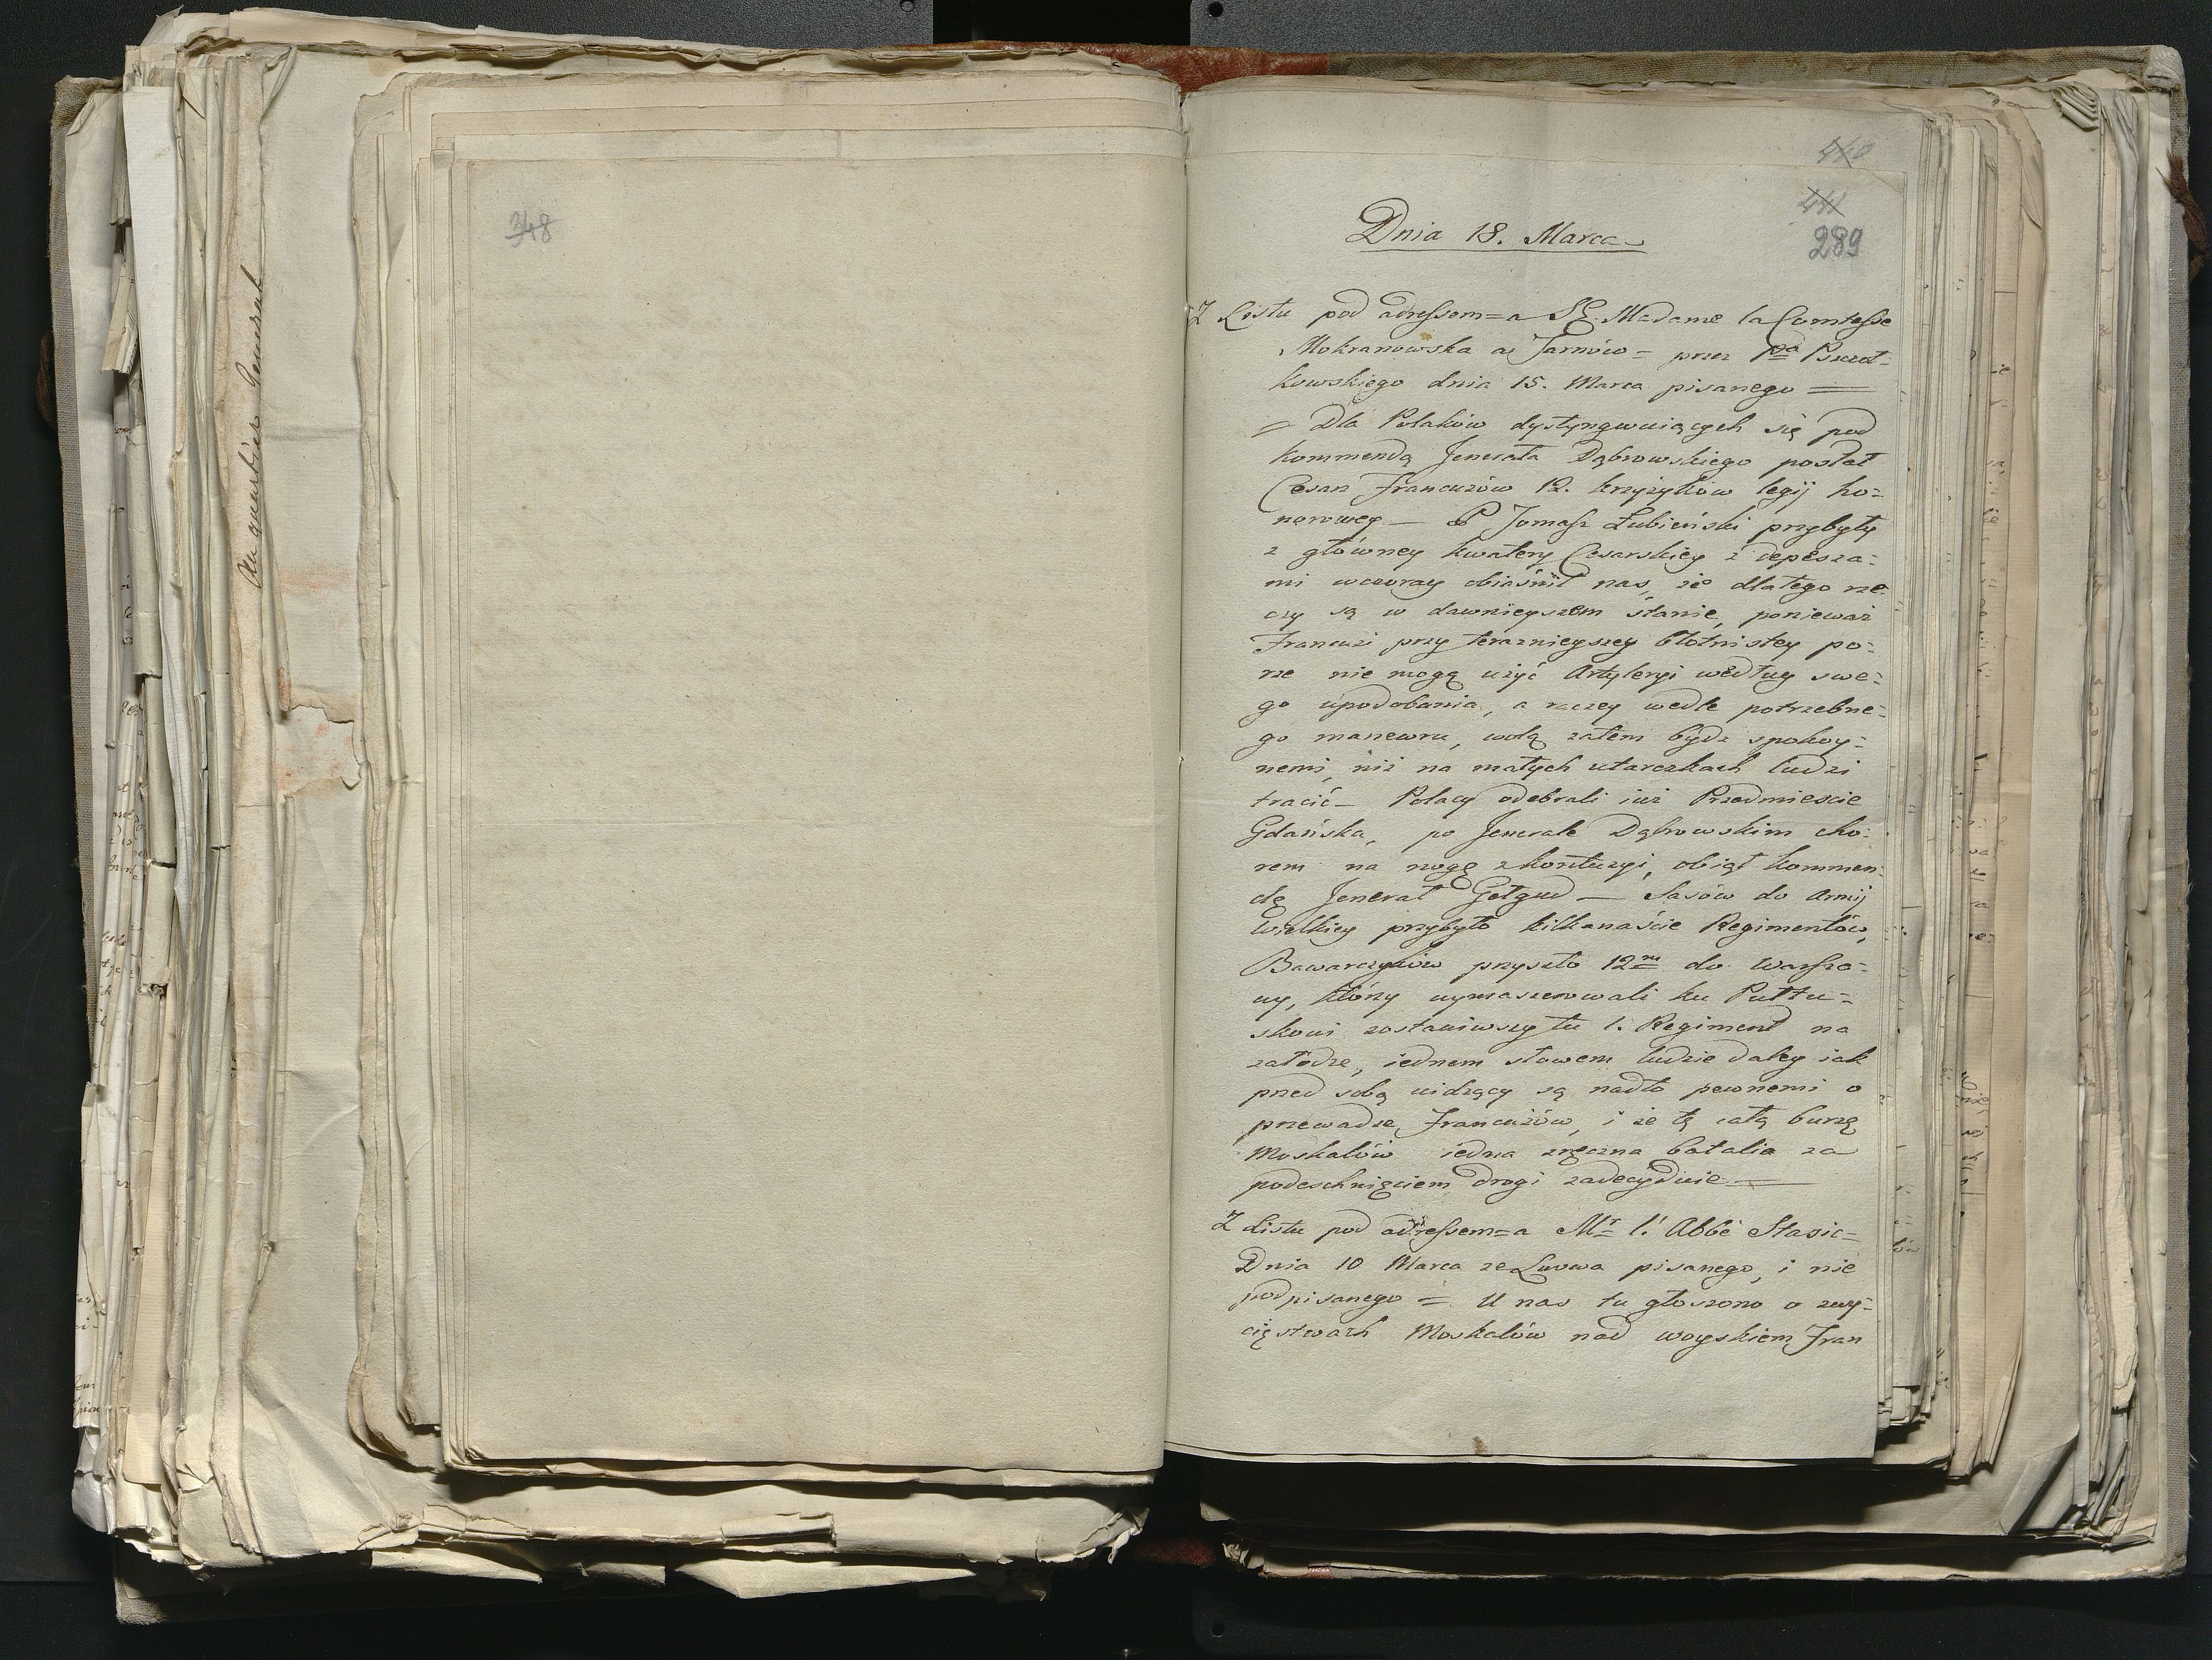 Au quartier General
348
440
441
289
Dnia 18. Marca
Z Listu pod adressem=a SE. Madame la Comtesse
Mokranowska a Tarnów= przez Pna Pszczoł-
kowskiego dnia 15. Marca pisanego =
= Dla Polaków dystyngwuiących się pod
kommendą Jenerała Dąbrowskiego posłał
Cesarz Francuzów 12. krzyżyków legij ho=
norowey — P Tomasz Łubieński przybyły
z główney kwatery Cesarskiey z depesza=
mi wczoray obiaśnił nas, że dlatego rze
czy są w dawnieyszem stanie, ponieważ
Francuzi przy teraznieyszey błotnistey po=
rze nie mogą użyć Artyleryi według swe=
go upodobania, a raczey wedle potrzebne=
go manewru, wolą zatem bydz spokoy=
nemi, niż na małych utarczkach ludzi
tracić — Polacy odebrali iuż Przedmiescie
Gdańska, po Jenerale Dąbrowskim cho=
rem na nogę z kontuzyi, obiął kommen=
dę Jenerał Gełgud — Sasów do Armij
Wielkiey przybyło kilkanaście Regimentów,
Bawarczyków przyszło 12m do Warsza=
wy, którzy wymaszerowali ku Pułtu=
skowi zostawiwszy tu 1. Regiment na
załodze, iednem słowem ludzie daley iak
przed sobą widzący są nadto pewnemi o
przewadze Francuzów, i że tę całą burzę
Moskalów iedna zręczna batalia za
podeschnięciem drogi zadecyduie —
Z Listu pod adressem=a Mr l'Abbé Stasic=
Dnia 10 Marca ze Lwowa pisanego, i nie
podpisanego = U nas tu głoszono o zwy=
cięstwach Moskalów nad woyskiem Fran